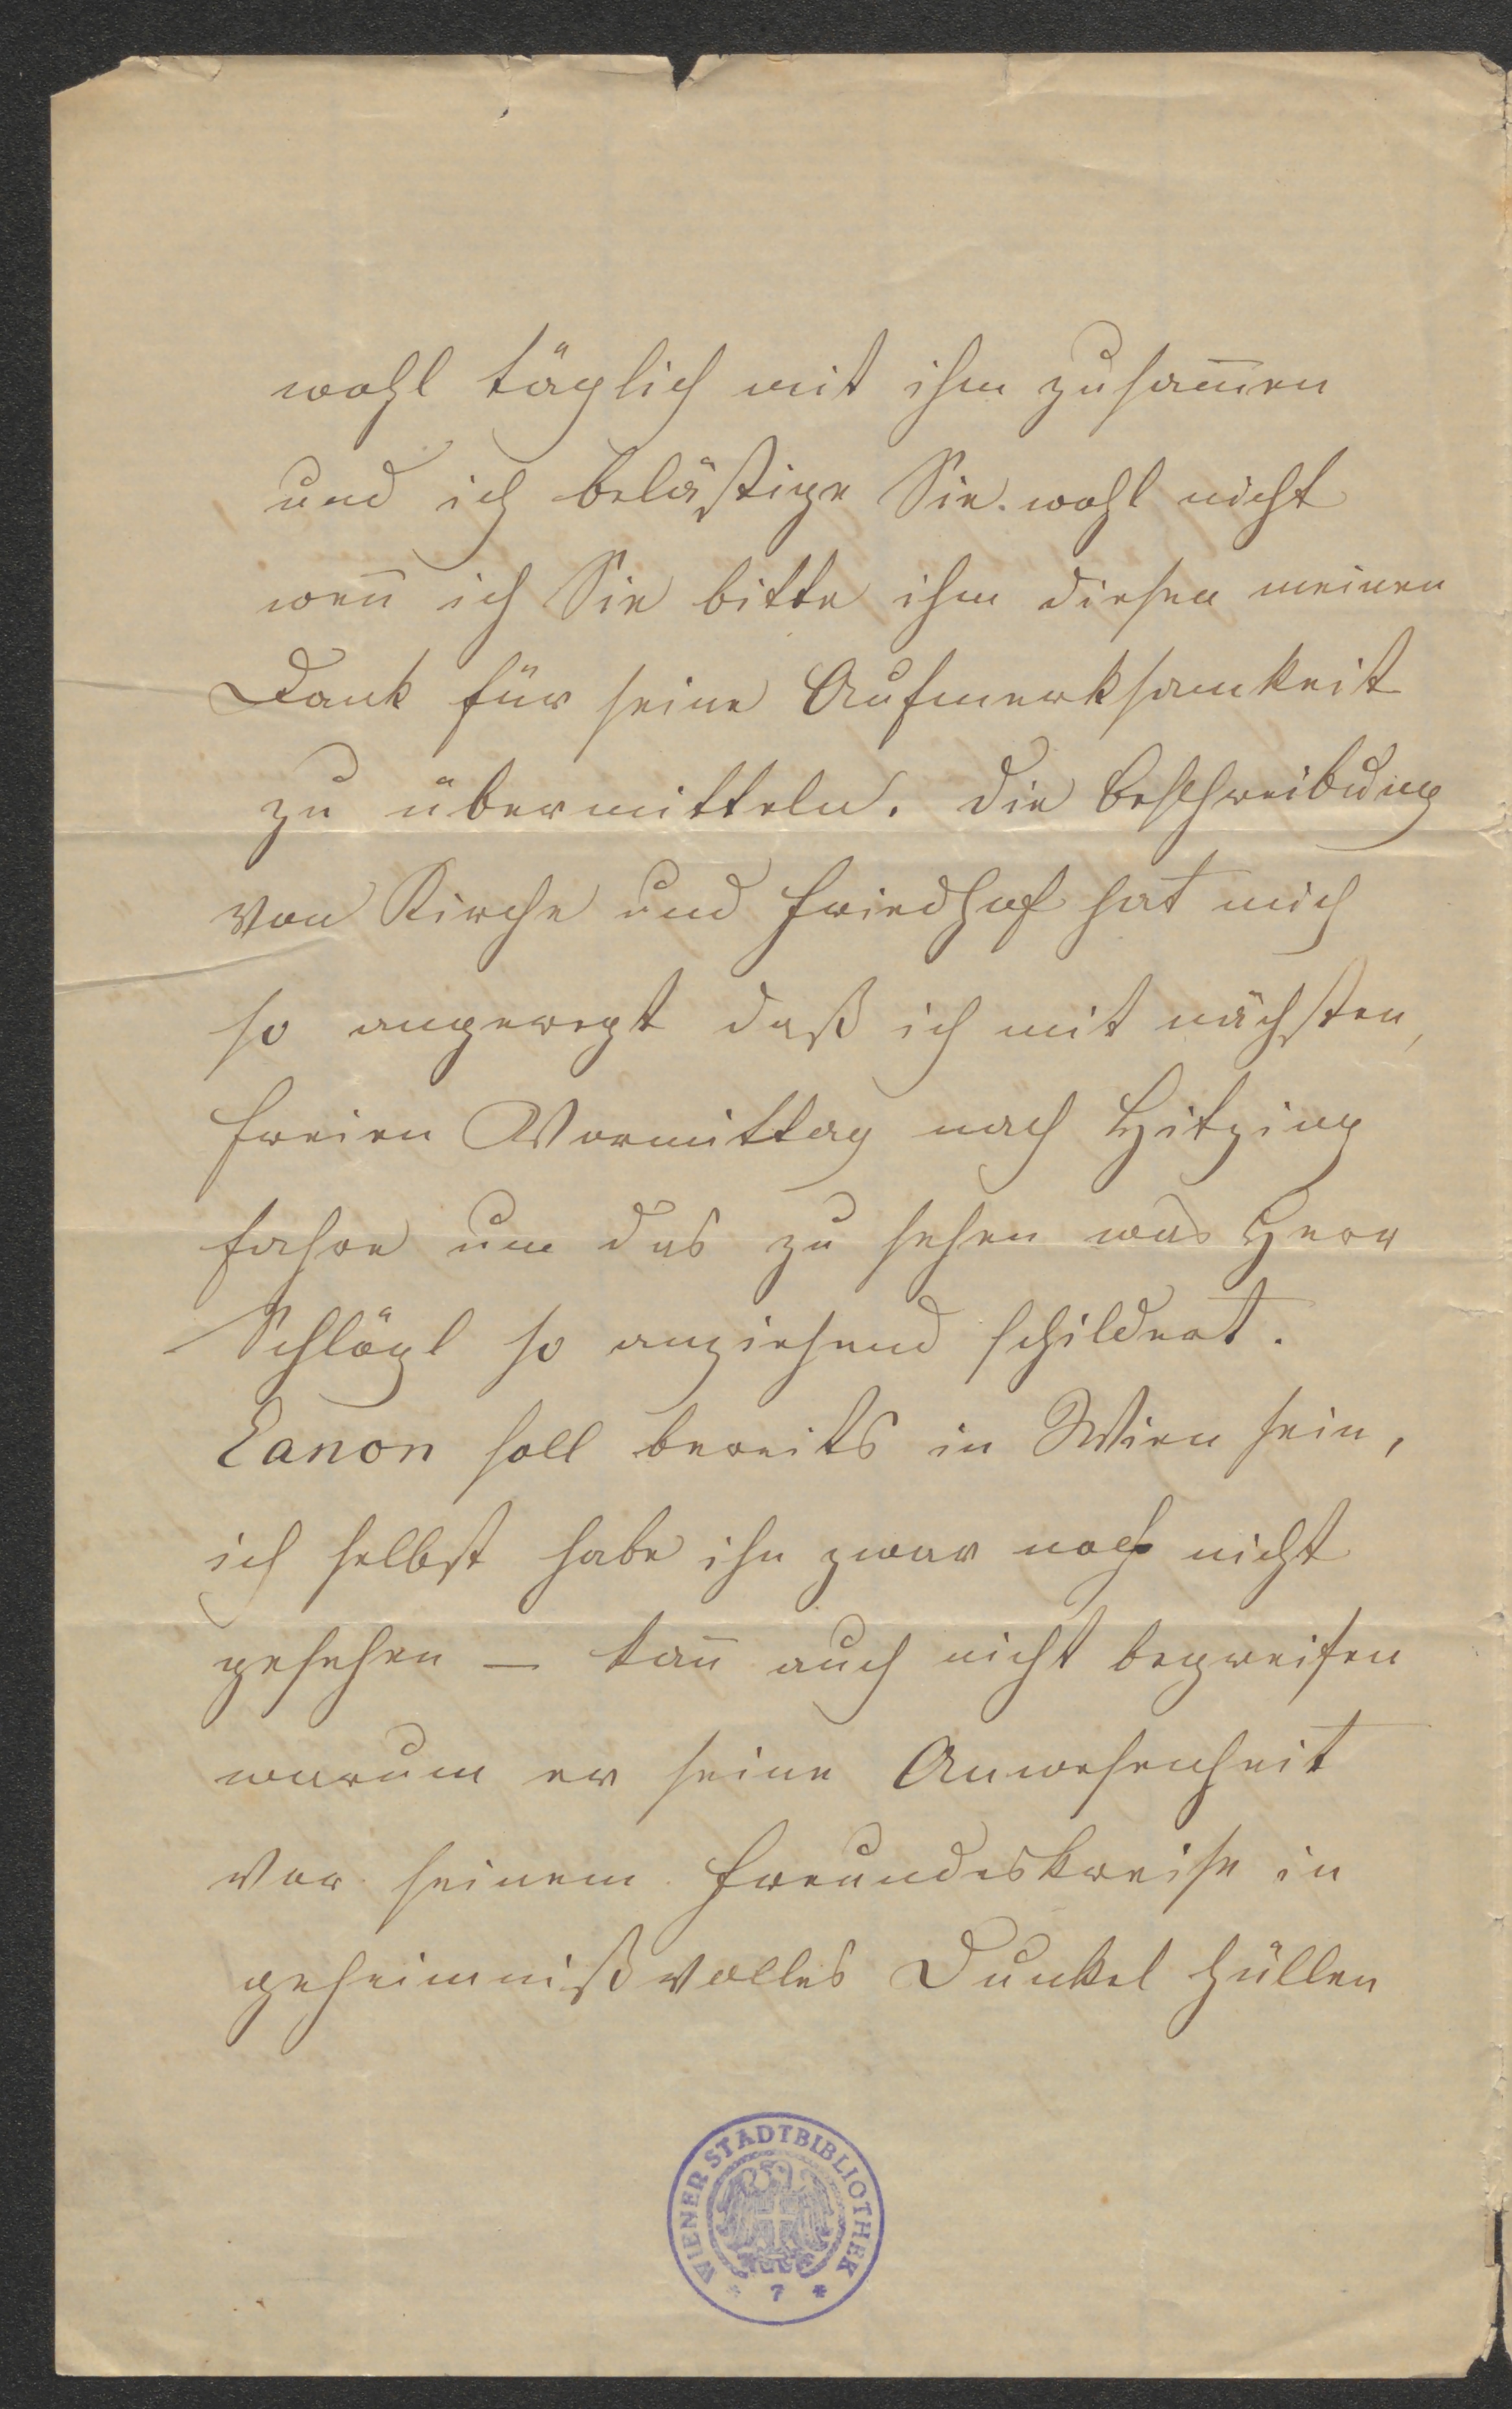 wohl täglich mit ihm zusam̅en
und ich belästige Sie wohl nicht
wen̅ ich Sie bitte ihm diesen meinen
Dank für seine Aufmerksamkeit
zu übermitteln. Die Beschreibung
von Kirche und Friedhof hat mich
so angeregt daß ich mit nächsten,
freien Vormittag nach Hitzing
fahre um das zu sehen was Herr
Schlögl so anziehend schildert.
Canon soll bereits in Wien sein,
ich selbst habe ihn zwar noch nicht
gesehen — kan̅ auch nicht begreifen
warum er seine Anwesenheit
vor seinem Freundeskreise in
geheimnißvolles Dunkel hüllen
WIENER STADTBIBLIOTHEK
* 7 *